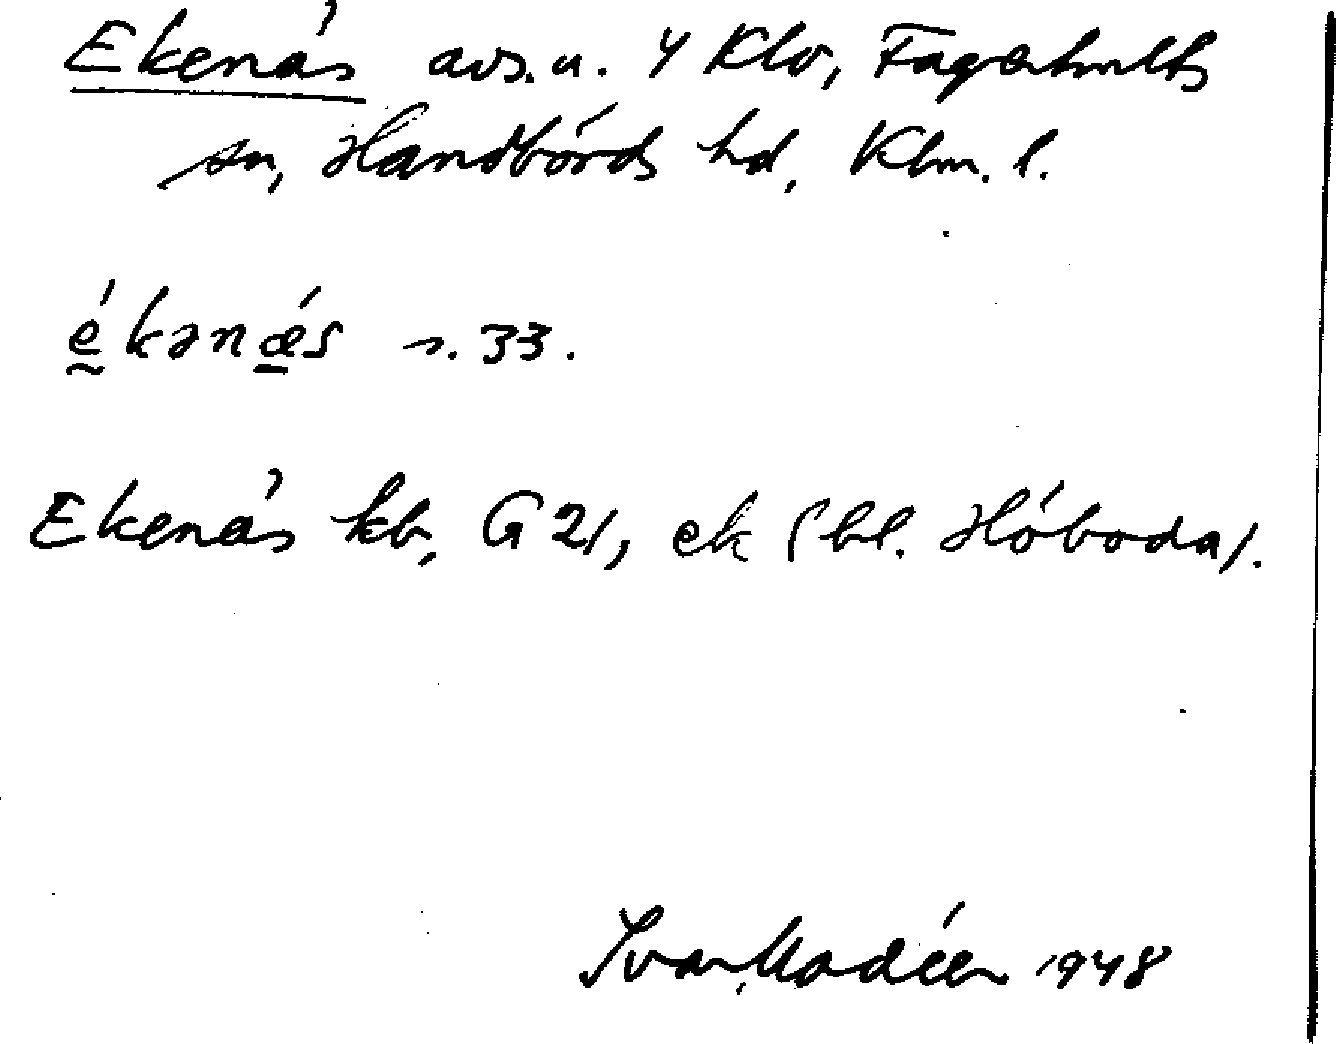 Ekenäs avs. u. 4 Klv, Fagerhults
sn, Handbörds hd, Klm. l.
ékənæ´s s. 33.
Ekenäs kb, G 21, ek (bl. Höboda).
Ivar Modéer 1948